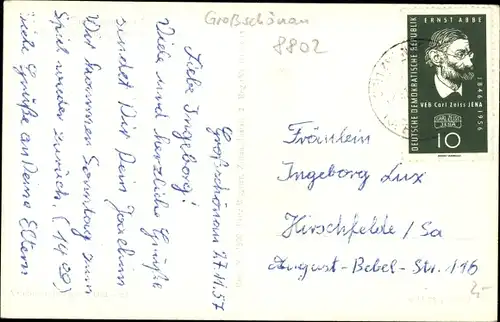 Großschönau
8802
Großschönau 27.11.57
Liebe Ingeborg!
Viele und herzliche Grüße
sendet Dir Dein Joachim
Wir kommen Sonntag zum
Spiel wieder zurück. (14 00)
viele Grüße an Deine Eltern
DEUTSCHE DEMOKRATISCHE REPUBLIK
ERNST ABBE
1846-1956
VEB Carl Zeiss JENA
CARL ZEISS
JENA
10
Fräulein
Ingeborg Lux
Hirschfelde/Sa
August-Bebel-Str. 116